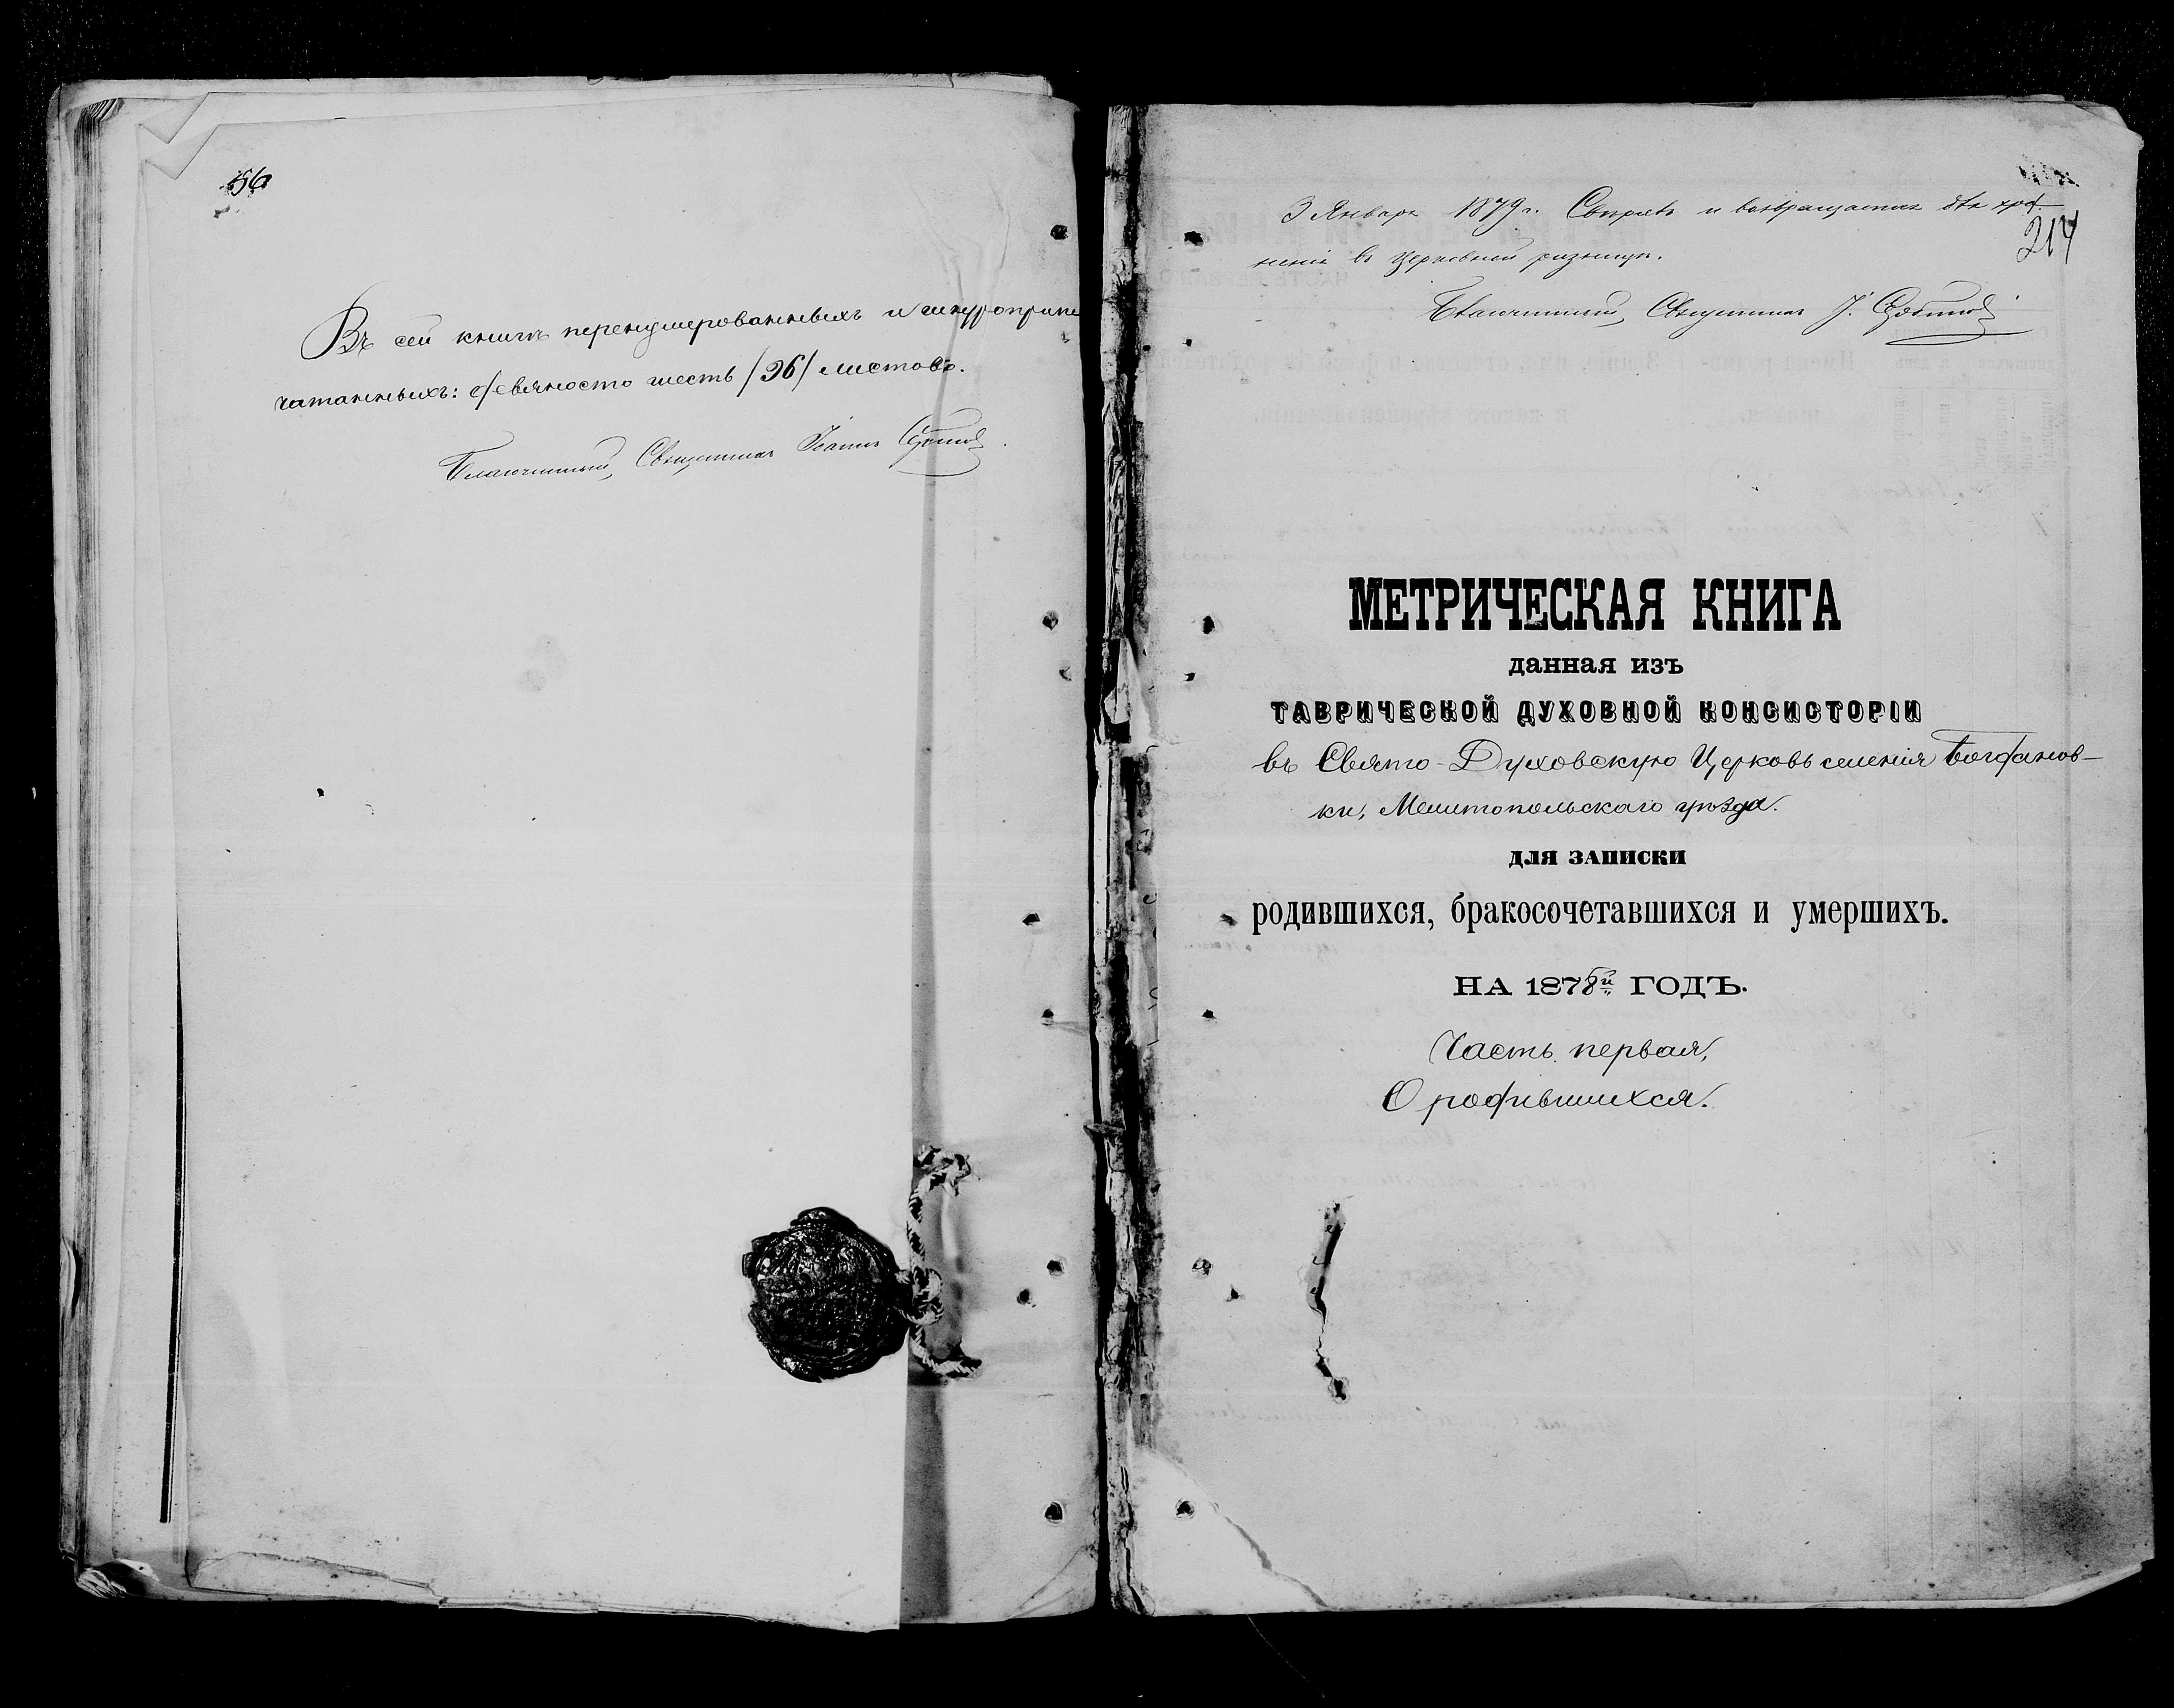 96
Въ сей книгѣ перенумерованныхъ и шнуроприпе
чатанныхъ: девяносто шесть /96/ листовъ.
Благочинный, Священникъ Іоаннъ
3 Января 1879 г. Свѣрялъ и возвращается для хра-
214
ненія въ церковной ризницѣ.
Благочинный, Священникъ І.
МЕТРИЧЕСКАЯ КНИГА
данная изъ
ТАВРИЧЕСКОЙ ДУХОВНОЙ КОНСИСТОРІИ
въ Свято-Духовскую Церковь селенія Богданов-
ки, Мелитопольскаго уѣзда.
для записки
родившихся, бракосочетавшихся и умершихъ.
НА 1878й ГОДЪ.
Часть первая,
О родившихся.